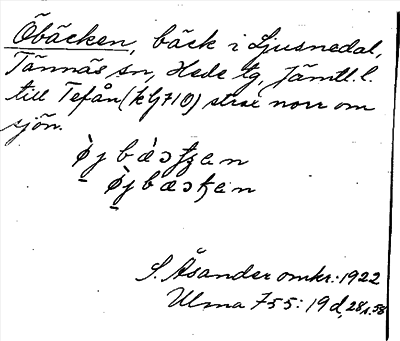 Öbäcken, bäck i Ljusnedal,
Tännäs sn, Hede tg, Jämtl. l.
till Tefån (klj 710) strax norr om
sjön.
S. Åsander omkr. 1922
Ulma 755: 19 d, 28/1.58